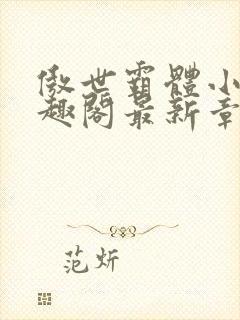 傲世霸體小
趣閣最新章
范炘